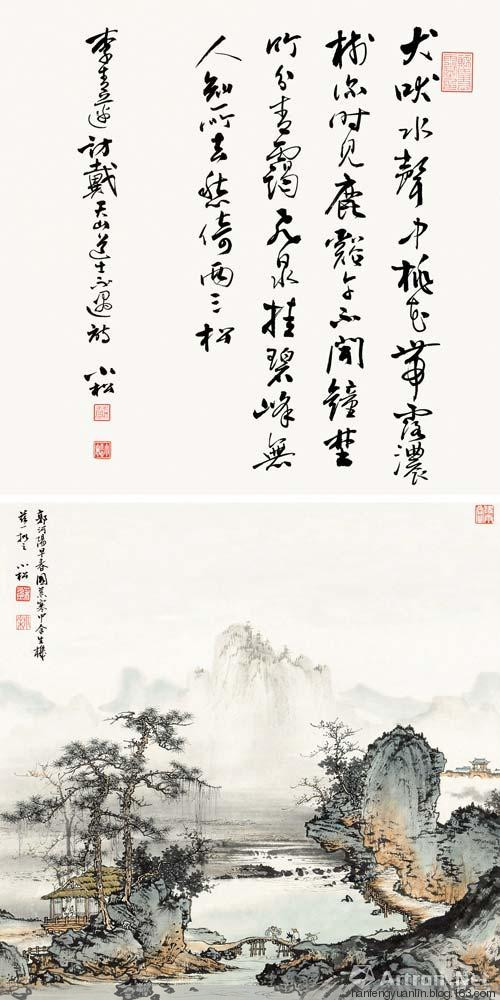 犬吠水聲中桃花帶露濃
樹深時見鹿谿午不聞鐘埜
竹分青靄飛泉挂碧峰無
人知所去愁倚兩三松
李青蓮訪戴天山道士不遇詩 小松
郭河陽早春圖荒寒中含生機
茲一擬之 小松
Artron.Net
hanfengyuanlin.blog.163.com